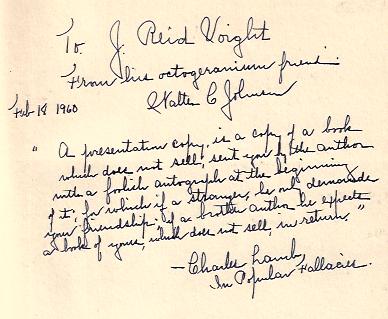 To J. Reid Voight
From his octogeranium friend
Walter C Johnson
Feb 18 1960
" A presentation copy, is a copy of a book
which does not sell, sent you by the author
with a foolish autograph at the beginning
of it; for which if a stranger, he only demands
your friendship; if a brother author he expects
a book of yours, which does not sell, in return."
— Charles Lamb,
In Popular Fallacies.